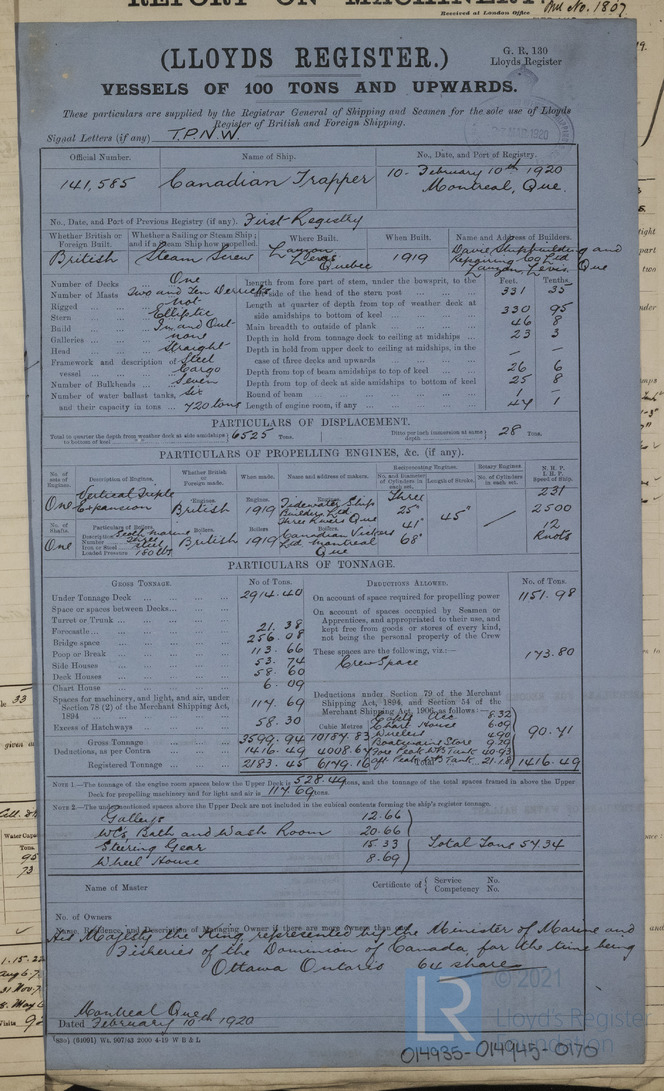 REPORT ON MACHINERY
Received at London Office
No. 1807
(LLOYDS REGISTER.)
G. R. 130
Lloyds Register
VESSELS OF 100 TONS AND UPWARDS.
These particulars are supplied by the Registrar General of Shipping and Seamen for the sole use of Lloyds
Register of British and Foreign Shipping.
Signal Letters (if any) T.P.N.W.
Official Number. Name of Ship. No., Date, and Port of Registry.
141,585 Canadian Trapper 10- February 10th 1920
Montreal, Que.
No., Date, and Port of Previous Registry (if any). First Registry
Whether British or Foreign Built. Whether a Sailing or Steam Ship; and if a Steam Ship how propelled. Where Built. When Built. Name and Address of Builders.
British Steam Screw Lauzon Levis Quebec 1919 Davie Shipbuilding and Repairing Co Ltd Lauzon Levis Que
Feet. Tenths.
Number of Decks ... One
Number of Masts Two and Ten Derricks
Rigged ... not
Stern ... Elliptic
Build ... In and Out
Galleries ... none
Head ... Straight
Framework and description of vessel ... Steel Cargo
Number of Bulkheads ... Seven
Number of water ballast tanks, Six
and their capacity in tons ... 720 tons
Length from fore part of stem, under the bowsprit, to the aft side of the head of the stern post 331 35
Length at quarter of depth from top of weather deck at side amidships to bottom of keel 330 95
Main breadth to outside of plank 46 8
Depth in hold from tonnage deck to ceiling at midships 23 3
Depth in hold from upper deck to ceiling at midships, in the case of three decks and upwards — —
Depth from top of beam amidships to top of keel 26 6
Depth from top of deck at side amidships to bottom of keel 25 8
Round of beam 1 —
Length of engine room, if any 44 1
PARTICULARS OF DISPLACEMENT.
Total to quarter the depth from weather deck at side amidships to bottom of keel 6525 Tons. Ditto per inch immersion at same depth 28 Tons.
PARTICULARS OF PROPELLING ENGINES, &c. (if any).
No. of sets of Engines. Description of Engines. Whether British or Foreign made. When made. Name and address of makers. Reciprocating Engines. Rotary Engines. N. H. P. I. H. P. Speed of Ship.
No. and Diameter of Cylinders in each set. Length of Stroke. No. of Cylinders in each set.
One Vertical Triple Expansion Engines. British Engines. 1919 Engines. Tidewater Ship Builders Ltd Three Rivers Que Three 25" 41" 68" 45" 231 2500 12 Knots
No. of Shafts. Particulars of Boilers. Boilers. Boilers Boilers.
One Description Scotch Marine Number Three Iron or Steel Steel Loaded Pressure 180 lbs. British 1919 Canadian Vickers Ltd Montreal Que
PARTICULARS OF TONNAGE.
GROSS TONNAGE. No of Tons. DEDUCTIONS ALLOWED. No. of Tons.
Under Tonnage Deck ... 2914.40
Space or spaces between Decks...
Turret or Trunk ...
Forecastle... 21.38
Bridge space ... 256.08
Poop or Break ... 113.66
Side Houses ... 53.74
Deck Houses ... 58.60
Chart House ... 6.09
Spaces for machinery, and light, and air, under Section 78 (2) of the Merchant Shipping Act, 1894 ... 117.69
Excess of Hatchways ... 58.30
Gross Tonnage ... 3599.94 10187.83
Deductions, as per Contra ... 1416.49 4008.67
Registered Tonnage ... 2183.45 6179.16
Cubic Metres
On account of space required for propelling power 1151.98
On account of spaces occupied by Seamen or Apprentices, and appropriated to their use, and kept free from goods or stores of every kind, not being the personal property of the Crew
These spaces are the following, viz.:—
Crew Space 173.80
Deductions under Section 79 of the Merchant Shipping Act, 1894, and Section 54 of the Merchant Shipping Act, 1906, as follows:—
8.32
Chart House 6.09
4.90
Boatswains Store 9.29
Fore Peak WB Tank 40.93
Aft Peak WB Tank 21.18
90.71
1416.49
NOTE 1.—The tonnage of the engine room spaces below the Upper Deck is 528.49 tons, and the tonnage of the total spaces framed in above the Upper
Deck for propelling machinery and for light and air is 117.69 tons.
NOTE 2.—The undermentioned spaces above the Upper Deck are not included in the cubical contents forming the ship's register tonnage.
Galleys 12.66
WC's Bath and Wash Room 20.66
Steering Gear 15.33
Wheel House 8.69
Total Tons 57.34
Name of Master Certificate of Service No. Competency No.
No. of Owners
Name, Residence, and Description of Managing Owner if there are more owners than one
His Majesty the King, represented by the Minister of Marine and
Fisheries of the Dominion of Canada for the time being
Ottawa Ontario 64 shares
Montreal Que
Dated February 10th 1920
(91091) Wt. 907/43 2000 4-19 W B & L
© 2021
LR
Lloyd's Register
Foundation
014935-014945-0170